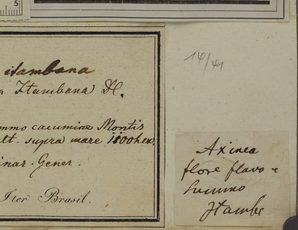 5
itambana
Itambana M.
mmo cacumine Montis
alt. supra mare 1800 hex
inar. Gener.
Iter Brasil.
14/41
Axinea
flore flavo
summo
Itambe